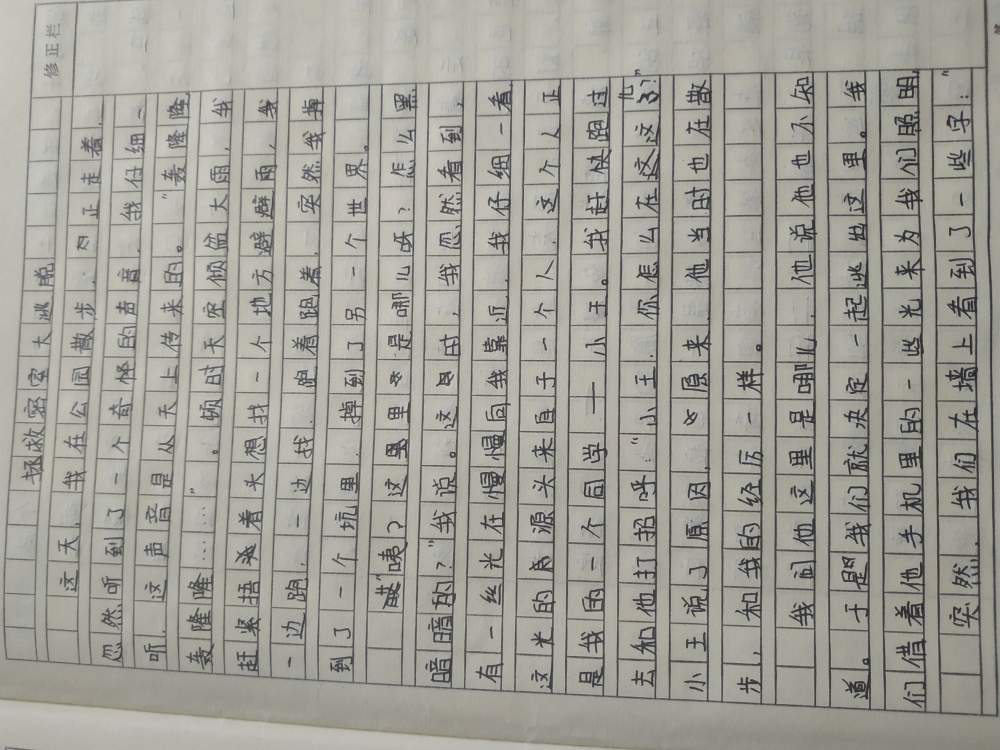 修正栏
拯救密室大逃脱
这天，我在公园散步，正走着，
忽然听到了一个奇怪的声音，我仔细一
听，这声音是从天上传来的。“轰隆隆
轰隆隆……”。顿时天空倾盆大雨，我
赶紧捂着头想找一个地方避雨，我
一边跑，一边找，跑着跑着，突然我掉
到了一个坑里，掉到了另一个世界。
“咦？这里是哪儿呀？怎么黑
暗暗的？”我说。这时，我忽然看到，
有一丝光在慢慢向我靠近，我仔细一看
这光的源头来自于一个人，这个人正
是我的一个同学——小王。我赶快跑过
去和他打招呼：“小王，你怎么在这这儿了？”
小王说了原因，原来，他当时也在散
步，和我的经历一样。
我问他这里是哪儿，他说他也不知
道。于是我们就决定一起逃出这里。我
们借着他手机里的一些光来为我们照明
突然，我们在墙上看到了一些字：“